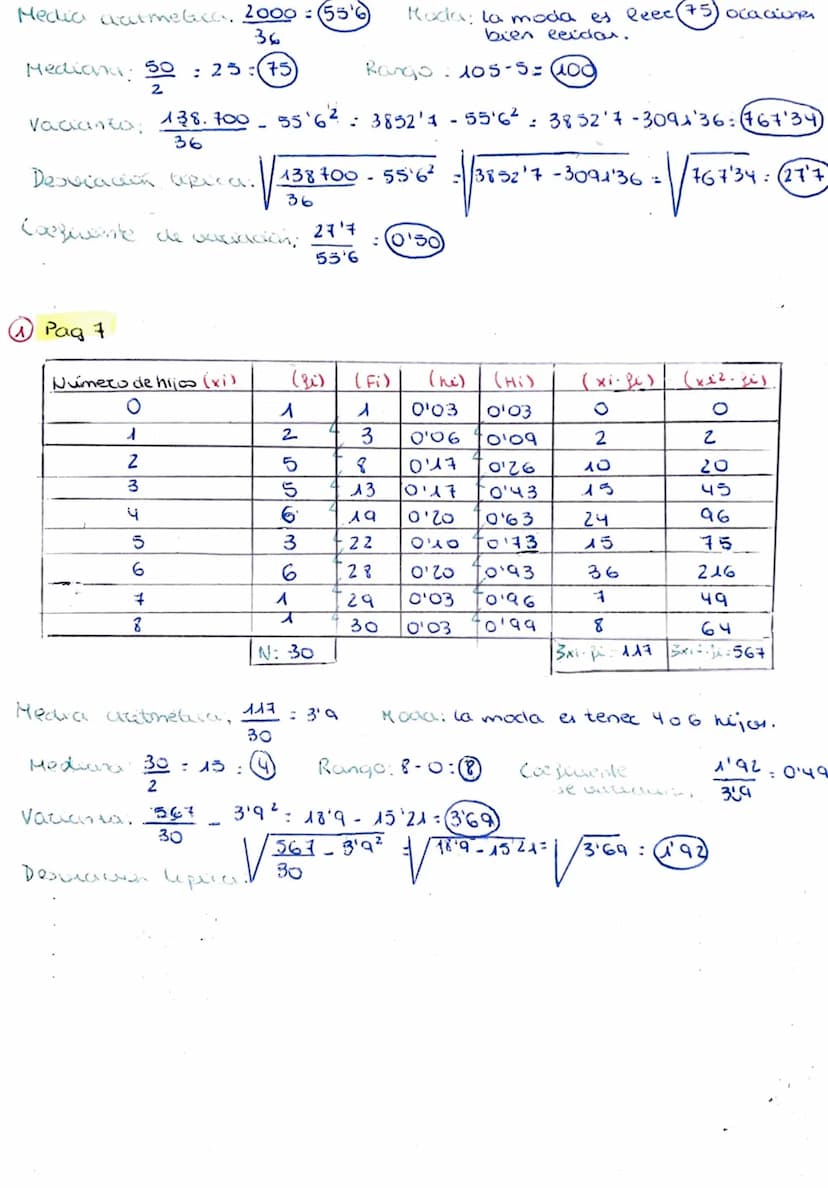 Media aritmética: 2000/36 = 55'6 Moda: La moda es leer 75 ocaciones
bien leidas.
Mediana: 50/2 : 25 = 75 Rango: 105-5 = 100
Varianza: 138.700/36 - 55'6² = 3852'7 - 55'6² = 3852'7 - 3091'36 = 767'34
Desviación típica: √138700/36 - 55'6² = √3852'7 - 3091'36 = √767'34 = 27'7
Coeficiente de variación: 27'7/55'6 = 0'50
① Pag 7
Número de hijos (xi) (fi) (Fi) (hi) (Hi) (xi·fi) (xi²·fi)
0 1 1 0'03 0'03 0 0
1 2 3 0'06 0'09 2 2
2 5 8 0'17 0'26 10 20
3 5 13 0'17 0'43 15 45
4 6 19 0'20 0'63 24 96
5 3 22 0'10 0'73 15 75
6 6 28 0'20 0'93 36 216
7 1 29 0'03 0'96 7 49
8 1 30 0'03 0'99 8 64
N: 30 Σxi·fi: 117 Σxi²·fi: 567
Media aritmética: 117/30 = 3'9 Moda: La moda es tener 4 o 6 hijos.
Mediana: 30/2 = 15 : 4 Rango: 8-0: 8 Coeficiente 1'92/3'9 = 0'49
Varianza: 567/30 - 3'9² = 18'9 - 15'21 = 3'69
Desviación típica: √567/30 - 3'9² = √18'9 - 15'21 = √3'69 : 1'92